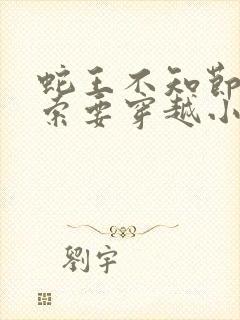 蛇王不知節
索要穿越小
劉宇